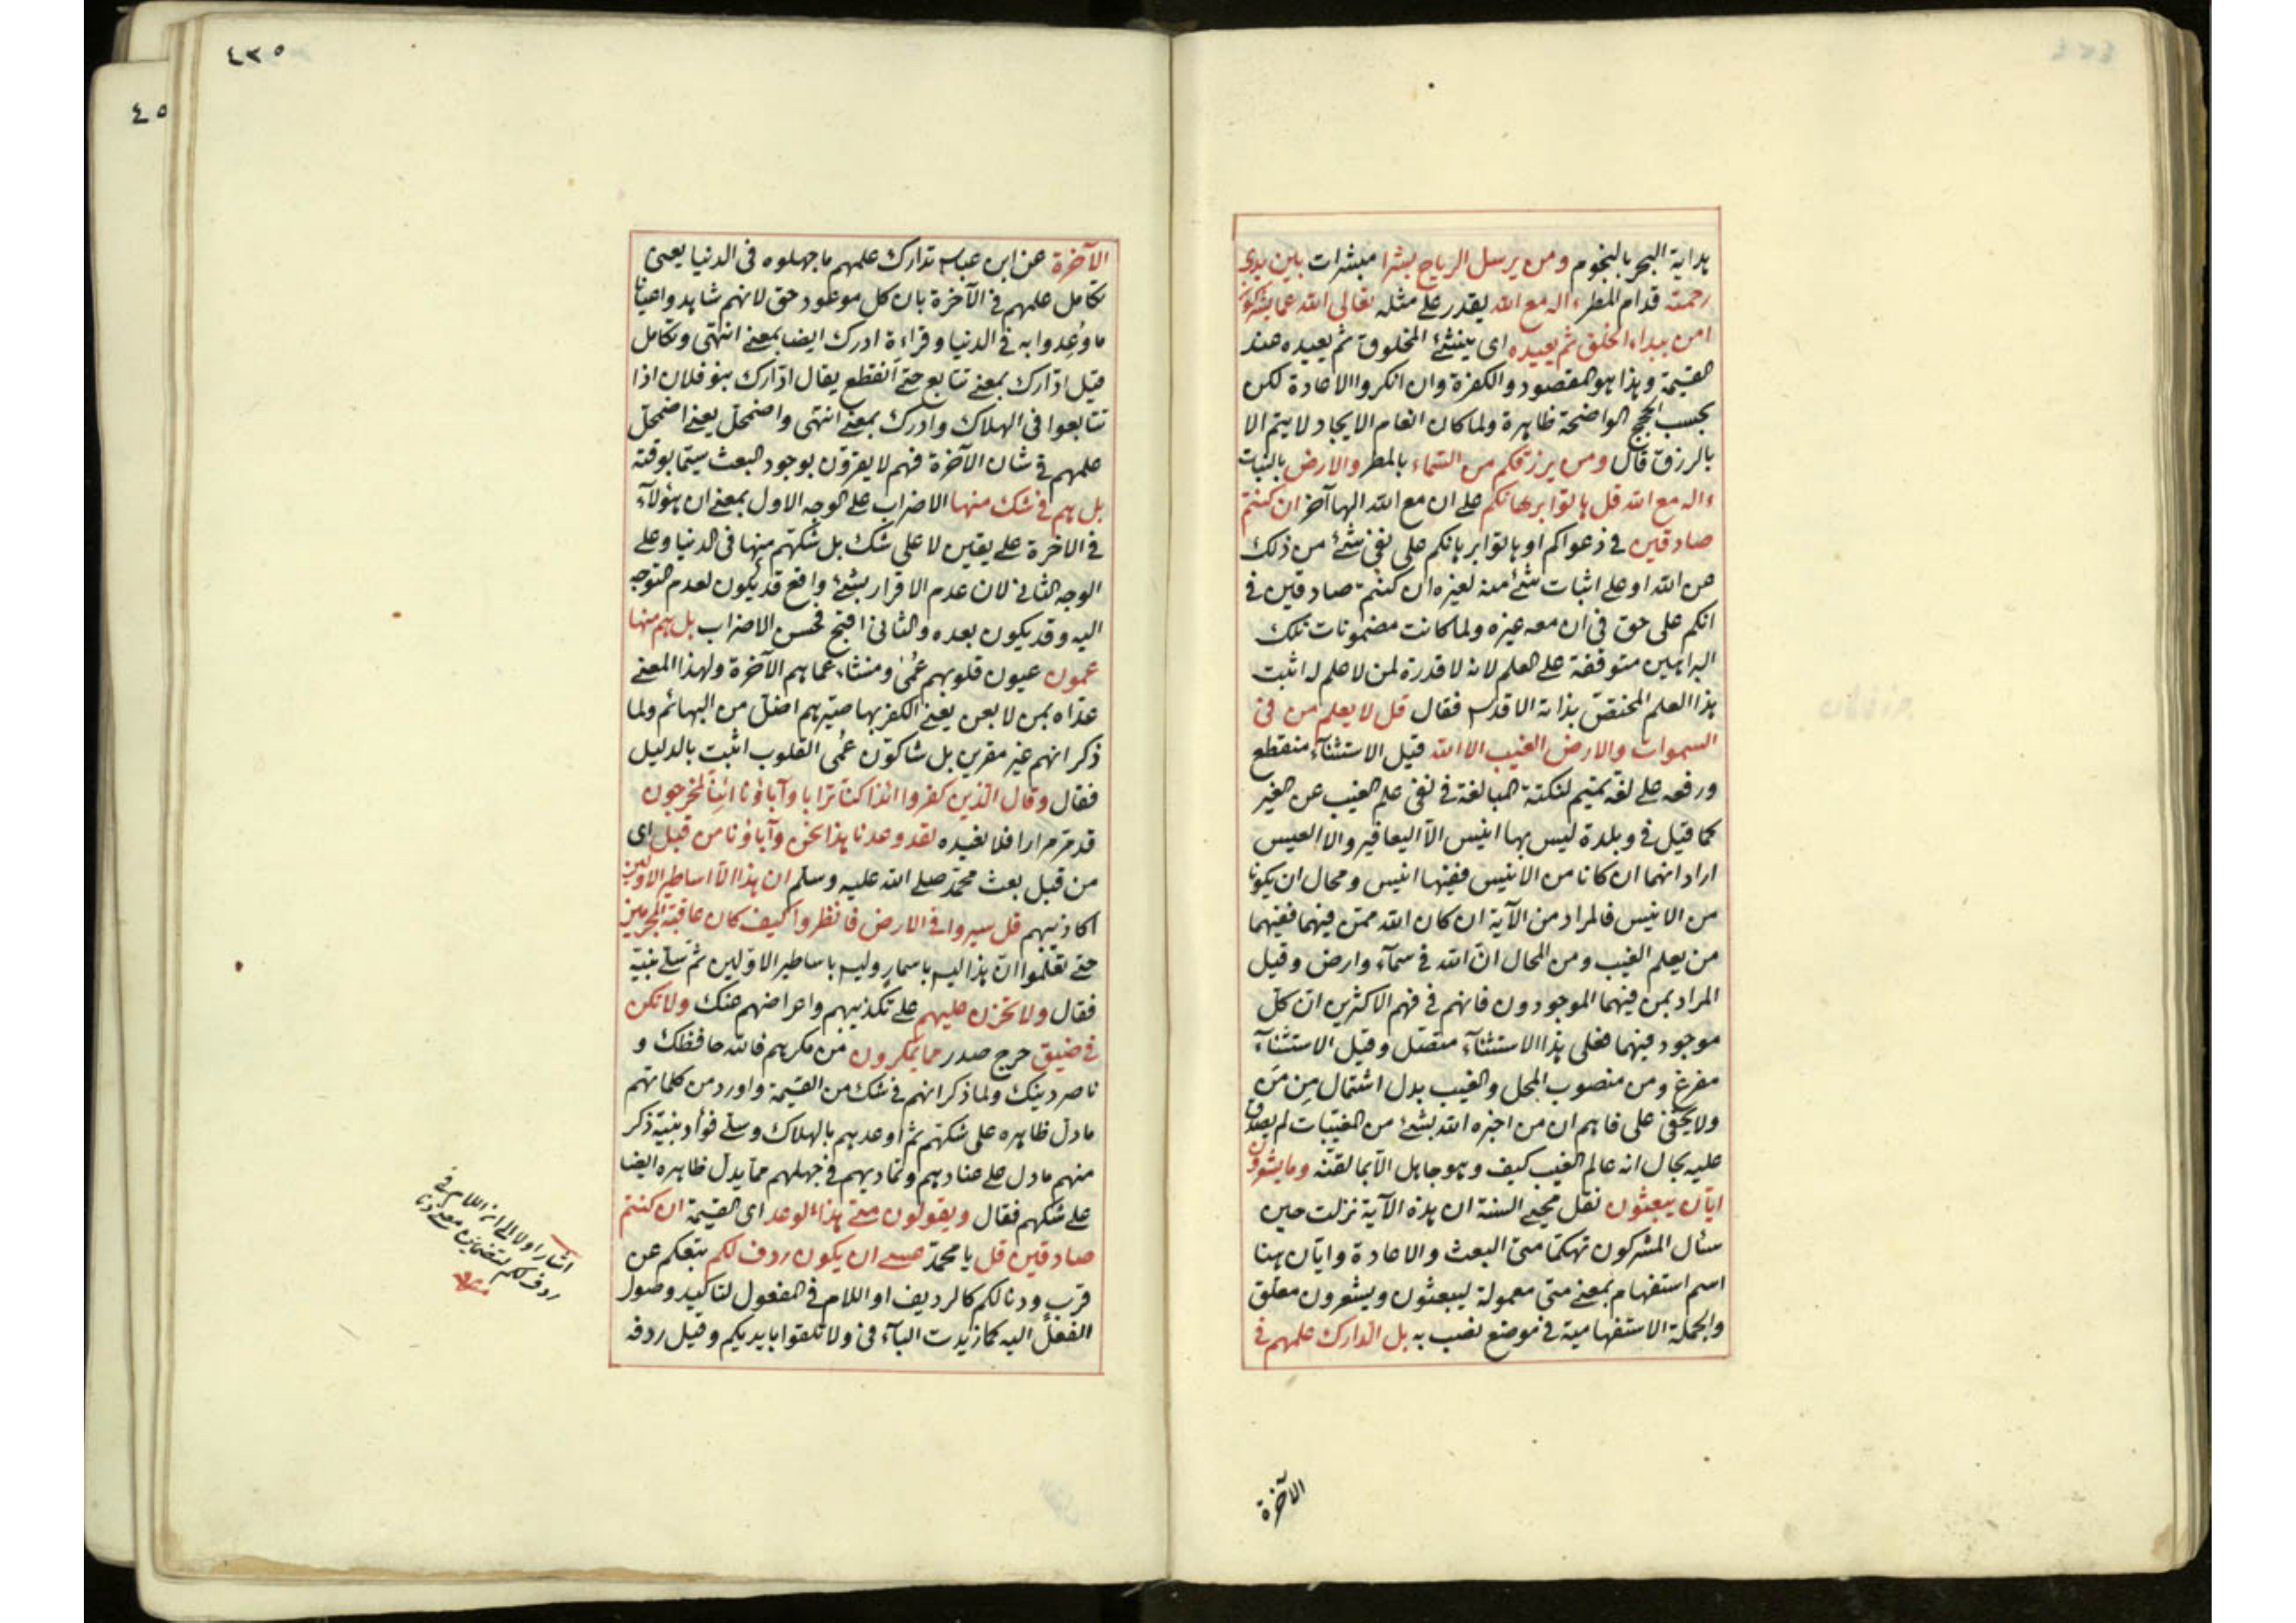 هداية البحر بالنجوم ومن يرسل الرياح بشرا مبشرات بين يدى
رحمته قدام المطر ءاله مع الله يقدر على مثله تعالى الله عما يشركون
امن يبداء الخلق ثم يعيده اى ينشئ المخلوق ثم يعيده عند
القيمة وهذا هو المقصود والكفرة وان انكروا الاعادة لكن
بحسب الحجج الواضحة ظاهرة ولما كان انعام الايجاد لا يتم الا
بالرزق قال ومن يرزقكم من السماء بالمطر والارض بالنبات
ءاله مع الله قل هاتوا برهانكم على ان مع الله الها آخر ان كنتم
صادقين فى دعواكم او هاتوا برهانكم على نفى شئ من ذلك
عن الله او على اثبات شئ منه لغيره ان كنتم صادقين فى
انكم على حق فى ان معه غيره ولما كانت مضمونات تلك
البراهين متوقفة على العلم لانه لا قدرة لمن لا علم له اثبت
هذا العلم المختص بذاته الاقدس فقال قل لا يعلم من فى
السموات والارض الغيب الا الله قيل الاستثناء منقطع
ورفعه على لغة تميم لنكتة المبالغة فى نفى علم الغيب عن الغير
كما قيل فى وبلدة ليس بها انيس الا اليعافير والا العيس
اراد انهما ان كانا من الانيس ففيها انيس ومحال ان يكونا
من الانيس فالمراد من الآية ان كان الله ممن فيهما ففيهما
من يعلم الغيب ومن المحال ان الله فى سمآء وارض وقيل
المراد بمن فيهما الموجودون فانهم فى فهم الاكثرين ان كل
موجود فيهما فعلى هذا الاستثنآء متصل وقيل الاستثنآء
مفرغ ومن منصوب المحل والغيب بدل اشتمال مِن مَن
ولا يخفى على فاهم ان من اخبره الله بشئ من المغيبات لم يصدق
عليه بحال انه عالم الغيب كيف وهو جاهل الا بما لقنه وما يشعرون
ايّان يبعثون نقل محيى السنة ان هذه الآية نزلت حين
سئال المشركون تهكما متى البعث والاعادة وايّان هنا
اسم استفهام بمعنى متى معمولة ليبعثون ويشعرون معلق
والجملة الاستفهامية فى موضع نصب به بل ادّارك علمهم فى
الآخرة
٤٣٥
٤٥
الآخرة عن ابن عباس تدارك علمهم ما جهلوه فى الدنيا يعنى
تكامل علمهم فى الآخرة بان كل موعود حق لانهم شاهدوا عيانا
ما وُعِدوا به فى الدنيا وقراءة ادرك ايضا بمعنى انتهى وتكامل
قيل ادّارك بمعنى تتابع حتى انقطع يقال ادّارك بنو فلان اذا
تتابعوا فى الهلاك وادرك بمعنى انتهى واضمحل يعنى اضمحل
علمهم فى شان الآخرة فهم لا يقرّون بوجود البعث سيّما بوقته
بل هم فى شك منها الاضراب على الوجه الاول بمعنى ان هؤلآء
فى الاخرة على يقين لا على شك بل شكهم منها فى الدنيا وعلى
الوجه الثانى لان عدم الاقرار بشئ واقع قد يكون لعدم التوجه
اليه وقد يكون بعده والثانى اقبح فحسن الاضراب بل هم منها
عمون عيون قلوبهم عُمىٌ ومنشاء عماهم الآخرة ولهذا المعنى
عدّاه بمن لا بعن يعنى الكفر بها صيّرهم اضل من البهائم ولما
ذكر انهم غير مقرين بل شاكّون عُمى القلوب اثبت بالدليل
فقال وقال الذين كفروا ائذا كنا ترابا وآباؤنا ائنا لمخرجون
قد مرّ مرارا فلا نعيده لقد وعدنا هذا نحن وآباؤنا من قبل اى
من قبل بعث محمد صلى الله عليه وسلم ان هذا الّا اساطير الاولين
اكاذيبهم قل سيروا فى الارض فانظروا كيف كان عاقبة المجرمين
حتى تعلموا انّ هذا ليس باسمار وليس باساطير الاوّلين ثم سلّى نبيّه
فقال ولا تحزن عليهم على تكذيبهم واعراضهم عنك ولا تكن
فى ضيق حرج صدر مما يمكرون من مكرهم فالله حافظك و
ناصر دينك ولما ذكر انهم فى شك من القيمة واورد من كلماتهم
ما دل ظاهره على شكهم ثم اوعدهم بالهلاك وسلى فؤاد نبيّه ذكر
منهم ما دل على عنادهم وتماديهم فى جهلهم مما يدل ظاهره ايضا
على شكهم فقال ويقولون متى هذا الوعد اى القيمة ان كنتم
صادقين قل يا محمّد عسى ان يكون ردف لكم تبعكم عن
قرب ودنا لكم كالرديف او اللام فى المفعول لتاكيد وصول
الفعل اليه كما زيدت البآء فى ولا تلقوا بايديكم وقيل ردفه
اشار اولا الى ان اللام فى
ردف لكم لتضمين معنى دنا
منه